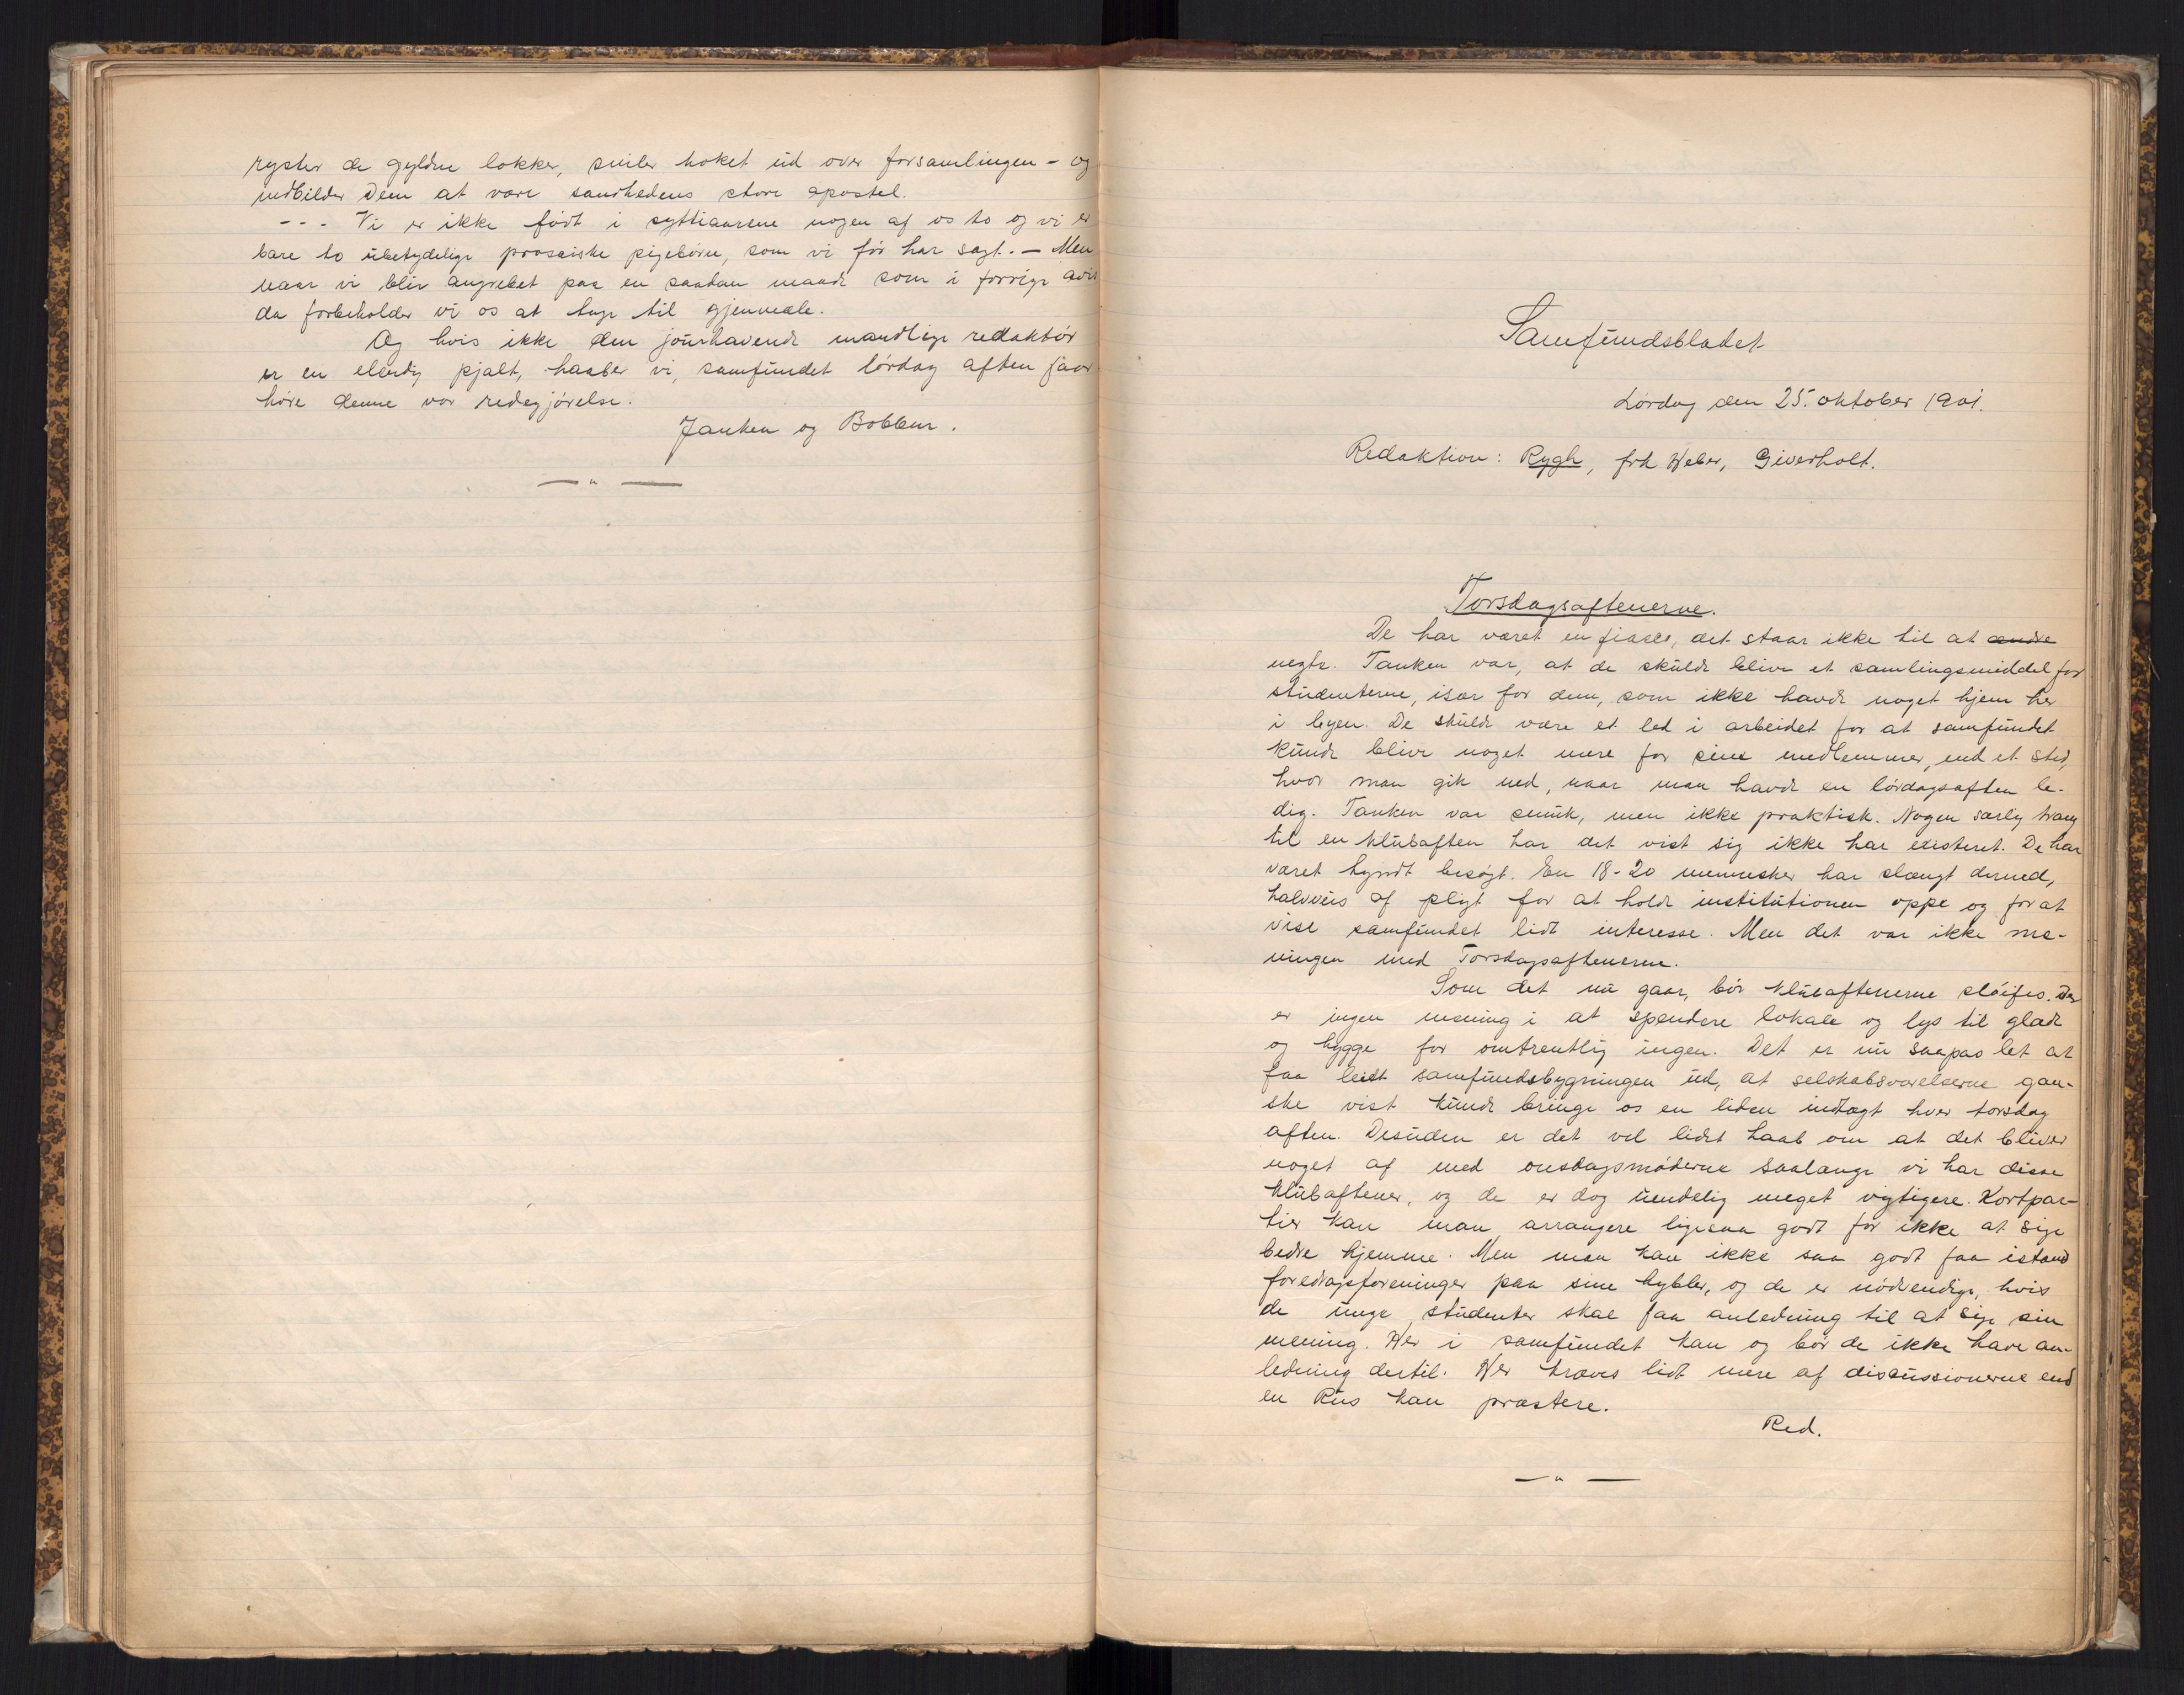 ryster de gyldne lokker, smiler koket ud over forsamlingen – og
indbilder Dem at være sandhedens store apostel.
--- Vi er ikke født i syttiaarene nogen af os to og vi er
bare to ubetydelige prosaiske pigebørn, som vi før har sagt. – Men
naar vi blir angrebet paa en saadan maade som i forrige avis
da forbeholder vi os at tage til gjenmæle.
Og hvis ikke den jourhavende mandlige redaktør
er en elendig pjalt, haaber vi, samfundet lørdag aften faar
høre denne vor redegjørelse.
Janken og Bobben.
— " —
Samfundsbladet
Lørdag den 25. oktober 1901.
Redaktion: Rygh, frk Weber, Giverholt.
Torsdagsaftenerne.
De har været en fiasco, det staar ikke til at ændre
negte. Tanken var, at de skulde blive et samlingsmiddel for
studenterne, især for dem, som ikke havde noget hjem her
i byen. De skulde være et led i arbeidet for at samfundet
kunde blive noget mere for sine medlemmer, end et sted,
hvor man gik ned, naar man havde en lørdagsaften le-
dig. Tanken var smuk, men ikke praktisk. Nogen særlig trang
til en klubaften har det vist sig ikke har existeret. De har
været tyndt besøgt. En 18-20 mennesker har slængt derned,
halvveis af pligt for at holde institutionen oppe og for at
vise samfundet lidt interesse. Men det var ikke me-
ningen med Torsdagsaftenerne.
Som det nu gaar, bør klubaftenerne sløifes. Der
er ingen mening i at spendere lokale og lys til glæde
og hygge for omtrentlig ingen. Det er nu saapas let at
faa leiet samfundsbygningen ud, at selskabsværelserne gan-
ske vist kunde bringe os en liden indtægt hver torsdag
aften. Desuden er det vel lidet haab om at det bliver
noget af med onsdagsmøderne saalænge vi har disse
klubaftener, og de er dog uendelig meget vigtigere. Kortpar-
tier kan man arrangere ligesaa godt for ikke at sige
bedre hjemme. Men man kan ikke saa godt faa istand
foredragsforeninger paa sine hybler, og de er nødvendige, hvis
de unge studenter skal faa anledning til at sige sin
mening. Her i samfundet kan og bør de ikke have an-
ledning dertil. Her kræves lidt mere af discussionerne end
en Rus kan præstere.
Red.
— " —